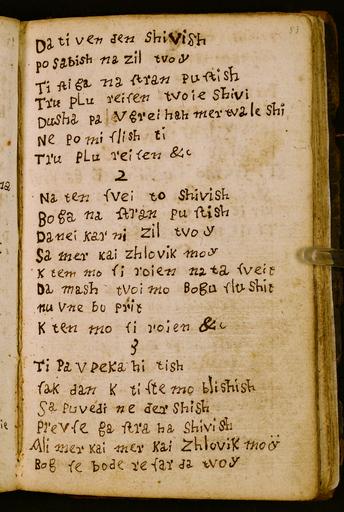 Da ti ven den Shiviſh
po sabish na zil tvoy
Ti ſti ga na ſtran pu ſtish
Tru plu reiſen tvoie Shivi
Dusha pa v grei hah mer wa le Shi
Ne po mi ſlish ti
Tru plu rei ſen &c
2
Na ten ſvei to Shivish
Boga na ſtran pu ſtish
Danei kar ni zil tvoy
Sa mer kai zhlovik moy
K tem mo ſi roien na ta ſveit
Da mash tvoi mo Bogu ſlu shit
nu vne bu priit
K ten mo ſi roien &c
3
Ti pa v peka hi tish
ſak dan k ti ſte mo blishish
Sa puvedi ne der shish
prevſe ga ſtra ha Shivish
Ali mer kai mer kai zhlovik moÿ
Bog ſe bode re ſar da tvoy